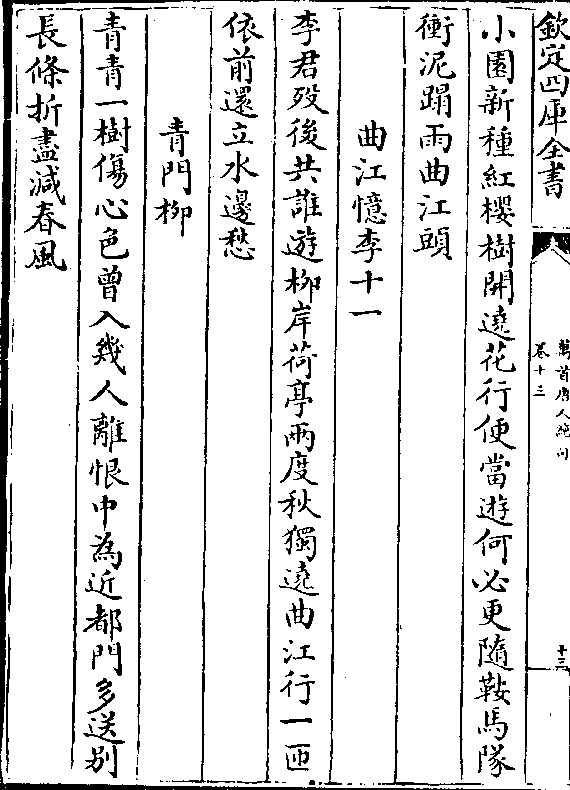 欽定四庫全書
萬首唐人絶句
卷十三
十三
小園新種紅櫻樹開遶花行便當遊何必更隨鞍馬隊
衝泥蹋雨曲江頭
曲江憶李十一
李君殁後共誰遊柳岸荷亭兩度秋獨遶曲江行一匝
依前還立水邊愁
青門柳
青青一樹傷心色曾入幾人離恨中為近都門多送别
長條折盡減春風